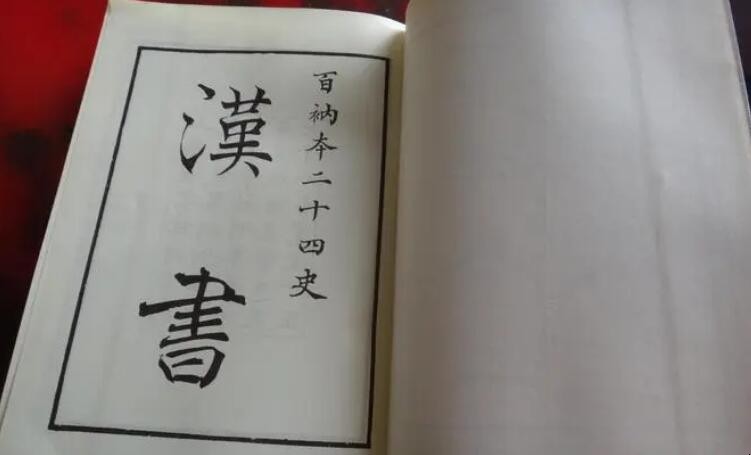 百衲本二十四史
漢書